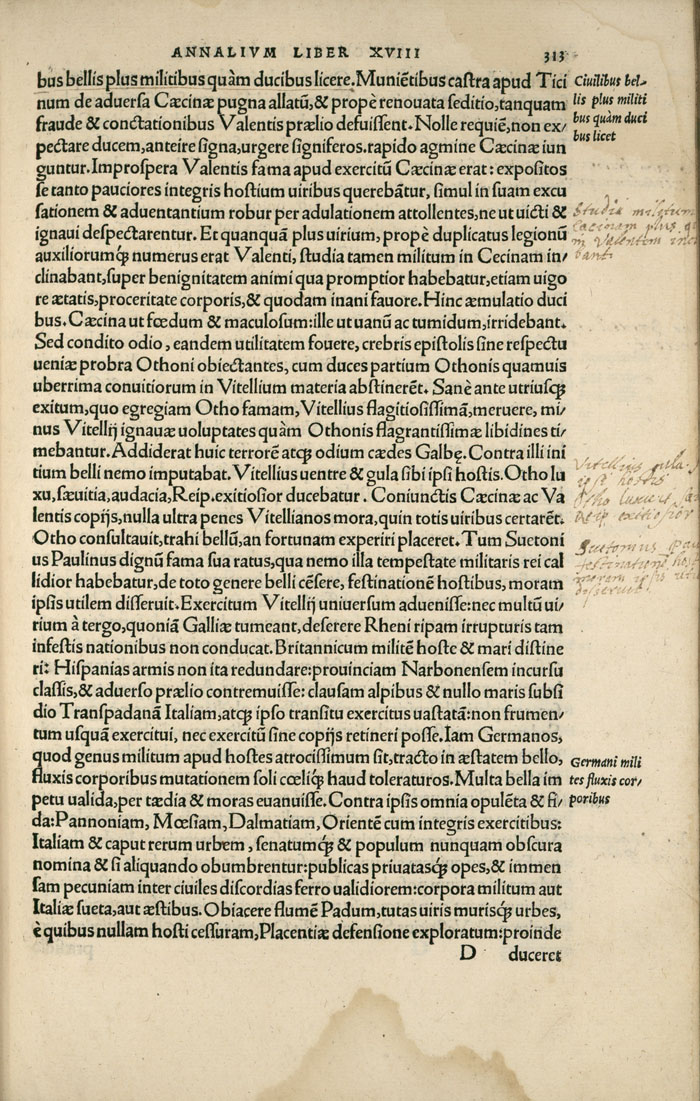 ANNALIVM LIBER XVIII 313
bus bellis plus militibus quàm ducibus licere. Muniẽtibus castra apud Tici
num de aduersa Cæcinæ pugna allatũ, & propè renouata seditio, tanquam
fraude & conctationibus Valentis prælio defuissent. Nolle requiẽ, non ex/
pectare ducem, anteire signa, urgere signiferos. rapido agmine Cæcinæ iun
guntur. Improspera Valentis fama apud exercitũ Cæcinæ erat: expositos
se tanto pauciores integris hostium uiribus querebãtur, simul in suam excu
sationem & aduentantium robur per adulationem attollentes, ne ut uicti &
ignaui despectarentur. Et quanquã plus uirium, propè duplicatus legionũ
auxiliorumq́; numerus erat Valenti, studia tamen militum in Cecinam in/
clinabant, super benignitatem animi qua promptior habebatur, etiam uigo
re ætatis, proceritate corporis, & quodam inani fauore. Hinc æmulatio duci
bus. Cæcina ut fœdum & maculosum: ille ut uanũ ac tumidum, irridebant.
Sed condito odio, eandem utilitatem fouere, crebris epistolis sine respectu
ueniæ probra Othoni obiectantes, cum duces partium Othonis quamuis
uberrima conuitiorum in Vitellium materia abstinerẽt. Sanè ante utriusq;
exitum, quo egregiam Otho famam, Vitellius flagitiosissimã, meruere, mi/
nus Vitellij ignauæ uoluptates quàm Othonis flagrantissimæ libidines ti/
mebantur. Addiderat huic terrorẽ atq; odium cædes Galbę. Contra illi ini
tium belli nemo imputabat. Vitellius uentre & gula sibi ipsi hostis. Otho lu
xu, sæuitia, audacia, Reip. exitiosior ducebatur. Coniunctis Cæcinæ ac Va
lentis copijs, nulla ultra penes Vitellianos mora, quin totis uiribus certarẽt.
Otho consultauit, trahi bellũ, an fortunam experiri placeret. Tum Suetoni
us Paulinus dignũ fama sua ratus, qua nemo illa tempestate militaris rei cal
lidior habebatur, de toto genere belli cẽsere, festinationẽ hostibus, moram
ipsis utilem disseruit. Exercitum Vitellij uniuersum aduenisse: nec multũ ui/
rium à tergo, quoniã Galliæ tumeant, deserere Rheni ripam irrupturis tam
infestis nationibus non conducat. Britannicum militẽ hoste & mari distine
ri: Hispanias armis non ita redundare: prouinciam Narbonensem incursu
classis, & aduerso prælio contremuisse: clausam alpibus & nullo maris subsi
dio Transpadanã Italiam, atq; ipso transitu exercitus uastatã: non frumen/
tum usquã exercitui, nec exercitũ sine copijs retineri posse. Iam Germanos,
quod genus militum apud hostes atrocissimum sit, tracto in æstatem bello,
fluxis corporibus mutationem soli cœliq́; haud toleraturos. Multa bella im
petu ualida, per tædia & moras euanuisse. Contra ipsis omnia opulẽta & fi/
da: Pannoniam, Mœsiam, Dalmatiam, Orientẽ cum integris exercitibus:
Italiam & caput rerum urbem, senatumq́; & populum nunquam obscura
nomina & si aliquando obumbrentur: publicas priuatasq́; opes, & immen
sam pecuniam inter ciuiles discordias ferro ualidiorem: corpora militum aut
Italiæ sueta, aut æstibus. Obiacere flumẽ Padum, tutas uiris murisq́; urbes,
è quibus nullam hosti cessuram, Placentiæ defensione exploratum: proinde
D duceret
Ciuilibus bel-
lis plus militi
bus quàm duci
bus licet
Studia militum
Cæcinam plus
in Valentem
bant.
Vitellius gula
ipse hostis
Otho luxu
Reip exitiosior
Suetonius
festinationem
moram ipsis
disseruit.
Germani mili
tes fluxis cor/
poribus